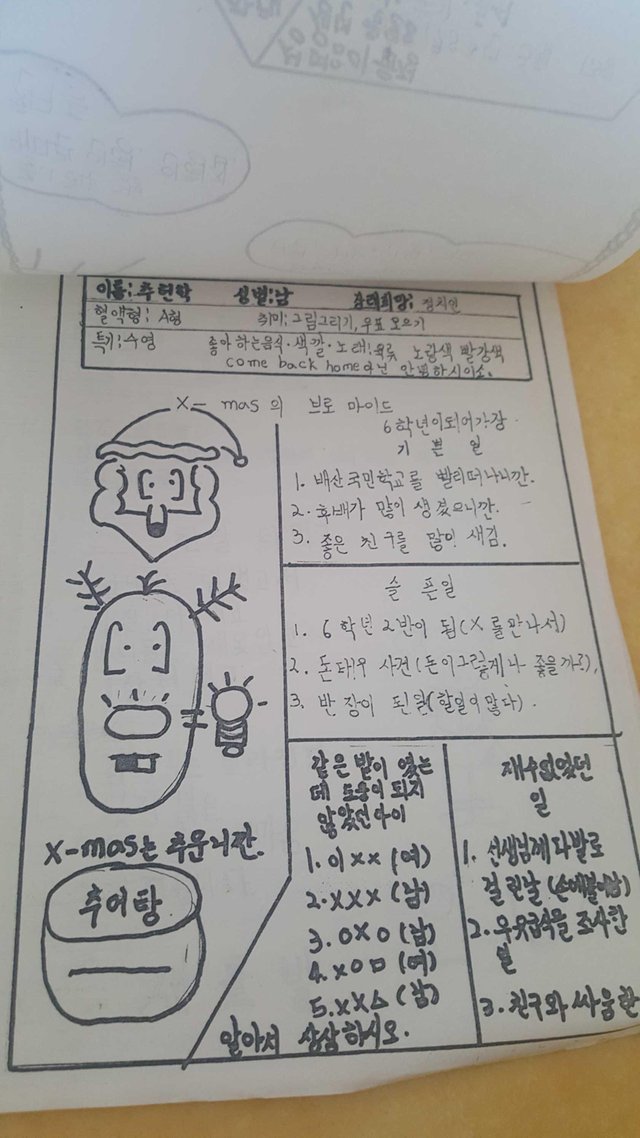 이름: 추헌학 성별: 남 장래희망: 정치인
혈액형: A형 취미: 그림그리기, 우표 모으기
특기: 수영 좋아하는음식·색깔·노래: 육류 노랑색 빨강색
come back home 아닌 안녕하시이소.
X-mas 의 브로마이드
6학년이되어가장
기쁜일
1. 배산국민학교를 빨리떠나니깐.
2. 후배가 많이 생겼으니깐.
3. 좋은 친구를 많이 새김.
슬픈일
1. 6학년 2반이 됨(X를만나서)
2. 돈태우 사건(돈이그렇게나 좋을까?),
3. 반장이 된일(할일이많다).
같은 반이 였는
데 도움이 되지
않았던아이
1. 이×× (여)
2. XXX (남)
3. O×O (남)
4. ×O□ (여)
5. XX△ (남)
알아서 상상하시오.
재수없었던
일
1. 선생님께 다발로
걸린날
2. 우유급식을 조사한
일
3. 친구와 싸움한
X-mas는 추운니깐.
추어탕